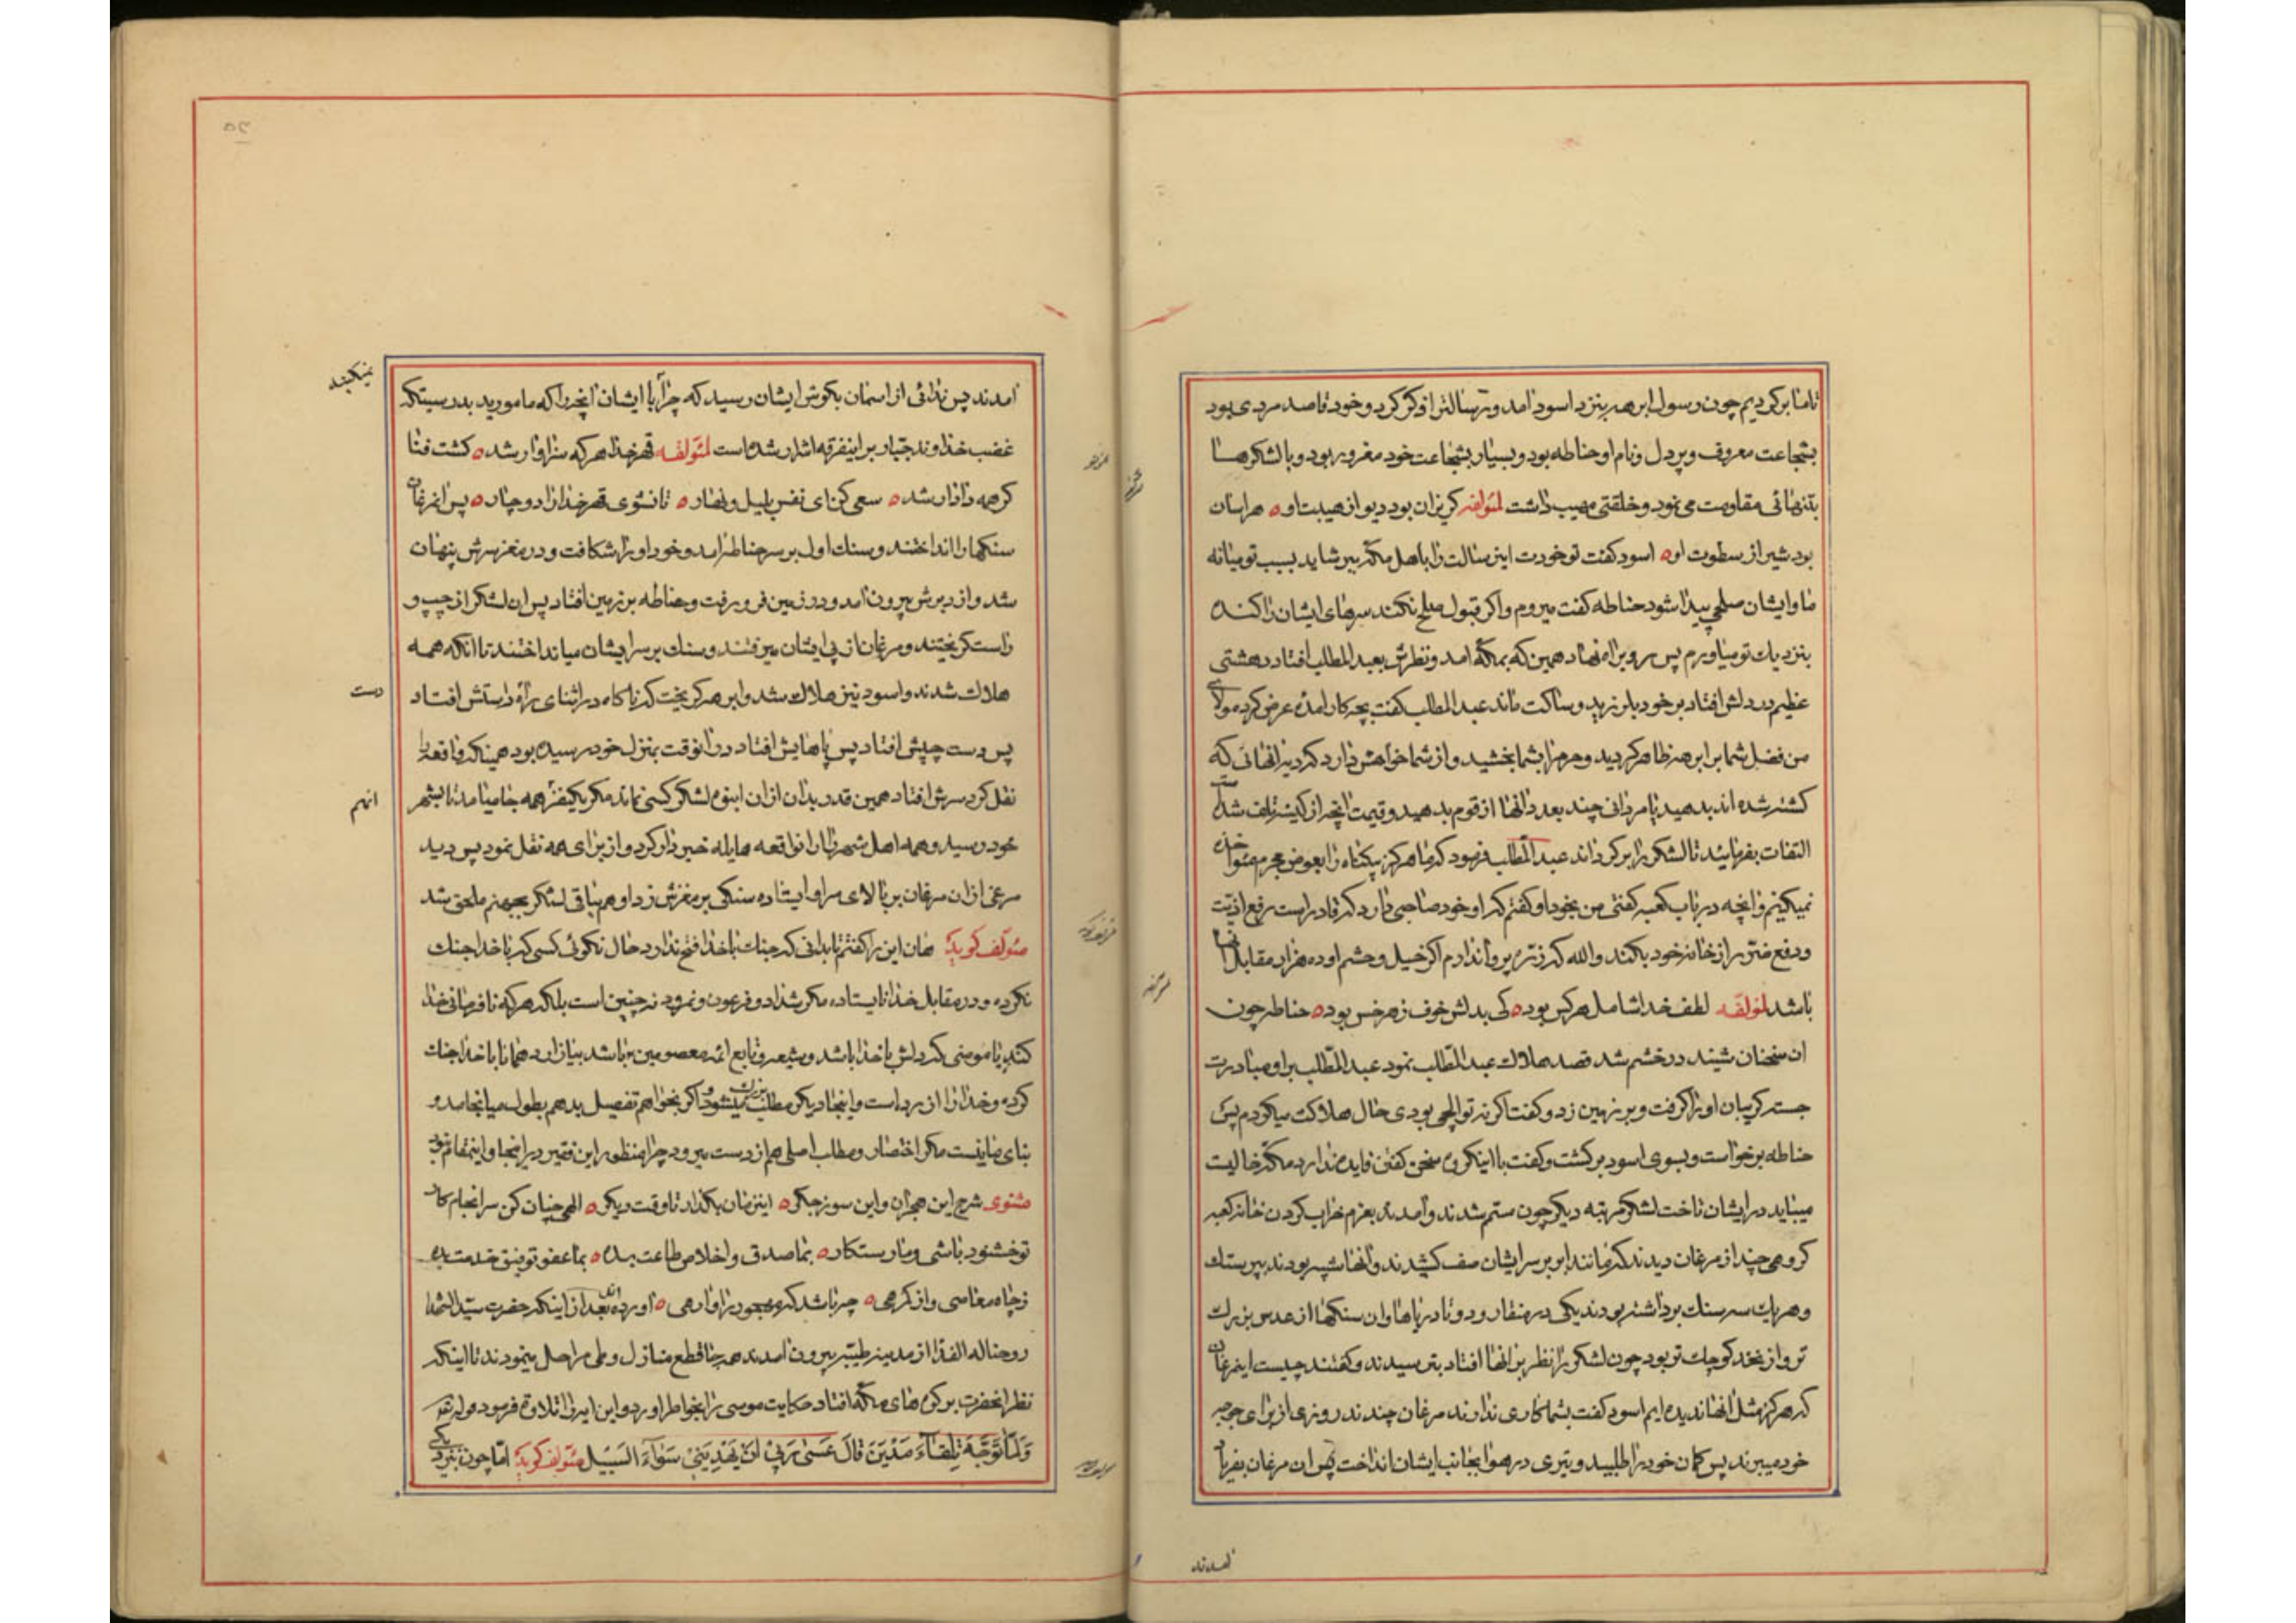 تا ما برگردیم چون رسول ابرهه بنزد اسود امد و رسالترا ذکر کرد و خود قاصد مردی بود
بشجاعت معروف و پردل و نام او حناطه بود و بسیار بشجاعت خود مغرور بود و با لشکرها
بتنهائی مقاومت می نمود و خلقتی مهیب داشت لمؤلفه کریزان بود دیو از هیبت او ه هراسان
بود شیر از سطوت او ه اسود کفت تو خودت این رسالت را باهل مکه ببر شاید بسبب تو میانه
ما و ایشان صلحی پیدا شود حناطه کفت میروم و اکر قبول صلح نکنند سرهای ایشان را کنده
بنزدیک تو میاورم پس رو براه نهاد همین که بمکه امد و نظرش بعبدالمطلب افتاد دهشتی
عظیم در دلش افتاد بر خود بلرزید و ساکت ماند عبدالمطلب کفت بچه کار امدهٔ عرض کرد مولای
من فضل شما بر ابرهه ظاهر کردید و حرم را بشما بخشید و از شما خواهش دارد که دیهٔ انهائی که
کشته شده اند بدهید یا مردانی چند بعدد انها از قوم بدهید و قیمت انچه از کنیسه تلف شده است
التفات بفرمائید تا لشکر را برکرداند عبدالمطلب فرمود که ما هرکز بیکناه را بعوض مجرم مؤاخذه
نمیکنیم و انچه در باب کعبه کفتی من بخود او کفتم که او خود صاحبی دارد که قادر است رفع اذیت
و دفع ضرر از خانه خود بکند والله که ذرهٔ پروا ندارم اکر خیل و حشم او ده هزار مقابل اینها
باشد لمؤلفه لطف خدا شامل هرکس بود ه کی بدلش خوف ز هر خس بود ه حناطه چون
ان سخنان شنید در خشم شد قصد هلاک عبدالمطلب نمود عبدالمطلب براو مبادرت
جسته کریبان او را کرفت و بر زمین زد و کفت اکر نه تو ایلچی بودی حال هلاکت میکردم پس
حناطه برخواست و بسوی اسود برکشت و کفت با اینکروه سخن کفتن فایده ندارد مکه خالیست
میباید در ایشان تاخت لشکر مرتبه دیکر چون ستم شدند و امدند بعزم خراب کردن خانه کعبه
کروهی چند از مرغان دیدند که مانند ابر بر سر ایشان صف کشیدند و انها شبیه بودند بپرستک
و هر یک سه سنک برداشته بودند یکی در منقار و دو تا در پاها و ان سنکها از عدس بزرک
تر و از نخد کوچک تر بود چون لشکر را نظر بر انها افتاد بترسیدند و کفتند چیست این مرغان
که هرکز مثل انها ندیده ایم اسود کفت بشما کاری ندارند مرغان چندند روزی از برای جوجه
خود میبرند پس کمان خود را طلبید و تیری در هوا بجانب ایشان انداخت پس ان مرغان بفریاد
امدند
امدند پس ندائی از اسمان بکوش ایشان رسید که چرا با ایشان انچه را که مامورید بدرستیکه
نمیکنید
غضب خداوند جبار بر اینفرقه اشرار شده است لمؤلفه قهر خدا هرکه سزاوار شد ه کشت فنا
کر همه دادار شد ه سعی کن ای نفس بلیل و نهار ه تا نشوی قهر خدا را دوچار ه پس انمرغان
سنکها را انداختند و سنک اول بر سر حناطه امد و خود او را شکافت و در مغز سرش پنهان
شد و از دبرش بیرون امد و در زمین فرو رفت و حناطه بر زمین افتاد پس ان لشکر از چپ و
راست کریختند و مرغان از پی ایشان میرفتند و سنک بر سر ایشان میانداختند تا انکه همه
هلاک شدند و اسود نیز هلاک شد و ابرهه کریخت که ناکاه در اثنای راه راستش افتاد
دست
پس دست چپش افتاد پس پاهایش افتاد در انوقت بمنزل خود رسیده بود همینکه واقعه را
نقل کرد سرش افتاد همین قدر بدان از ان انبوه لشکر کسی نماند مکر یکنفر همه جا میامد تا بشهر
انهم
خود رسید و همه اهل شهر را از انواقعه هایله خبردار کرد و از برای همه نقل نمود پس دید
مرغی از ان مرغان بر بالای سر او ایستاده سنکی بر مغزش زد او هم بباقی لشکر بجهنم ملحق شد
مؤلف کوید هان این را کفتم تا بدانی که جنک با خدا فتح ندارد حال نکوئی کسی که با خدا جنک
نکرده و در مقابل خدا نایستاده مکر شداد و فرعون و نمرود نه چنین است بلکه هرکه نافرمانی خدا
کند یا مومنی که دلش با خدا باشد و شیعه و تابع ائمه معصومین باشد بیازارد همانا با خدا جنک
کرده و خدا را ازرده است و اینجا دیکر مطلب بزرک میشود و اکر بخواهم تفصیل بدهم بطول میانجامد و
بنای ما نیست مکر اختصار و مطلب اصلی هم از دست میرود چرا منظور این فقیر در اینجا و اینمقام نبود
مثنوی شرح این هجران و این سوز جکر ه اینزمان بکذار تا وقت دیکر ه الهی چنان کن سرانجام کار
تو خشنود باشی و ما رستکار ه بما صدق و اخلاص طاعت بده ه بما عفو توفیق خدمت بده
ز چاه معاصی و از کمرهی ه چه باشد که را وارهی ه اورده اند بعد از اینکه حضرت سیدالشهدا
روحنا له الفدا از مدینه طیبه بیرون امدند همه جا قطع منازل و طی مراحل مینمودند تا اینکه
نظر انحضرت بر کوه های مکه افتاد حکایت موسی را بخواطر اورد و این ایه را تلاوة فرمود قوله تعالی
وَلَمَّا تَوَجَّهَ تِلْقَاءَ مَدْيَنَ قَالَ عَسَىٰ رَبِّي أَنْ يَهْدِيَنِي سَوَاءَ السَّبِيلِ مؤلف کوید اما چون بنزدیکی